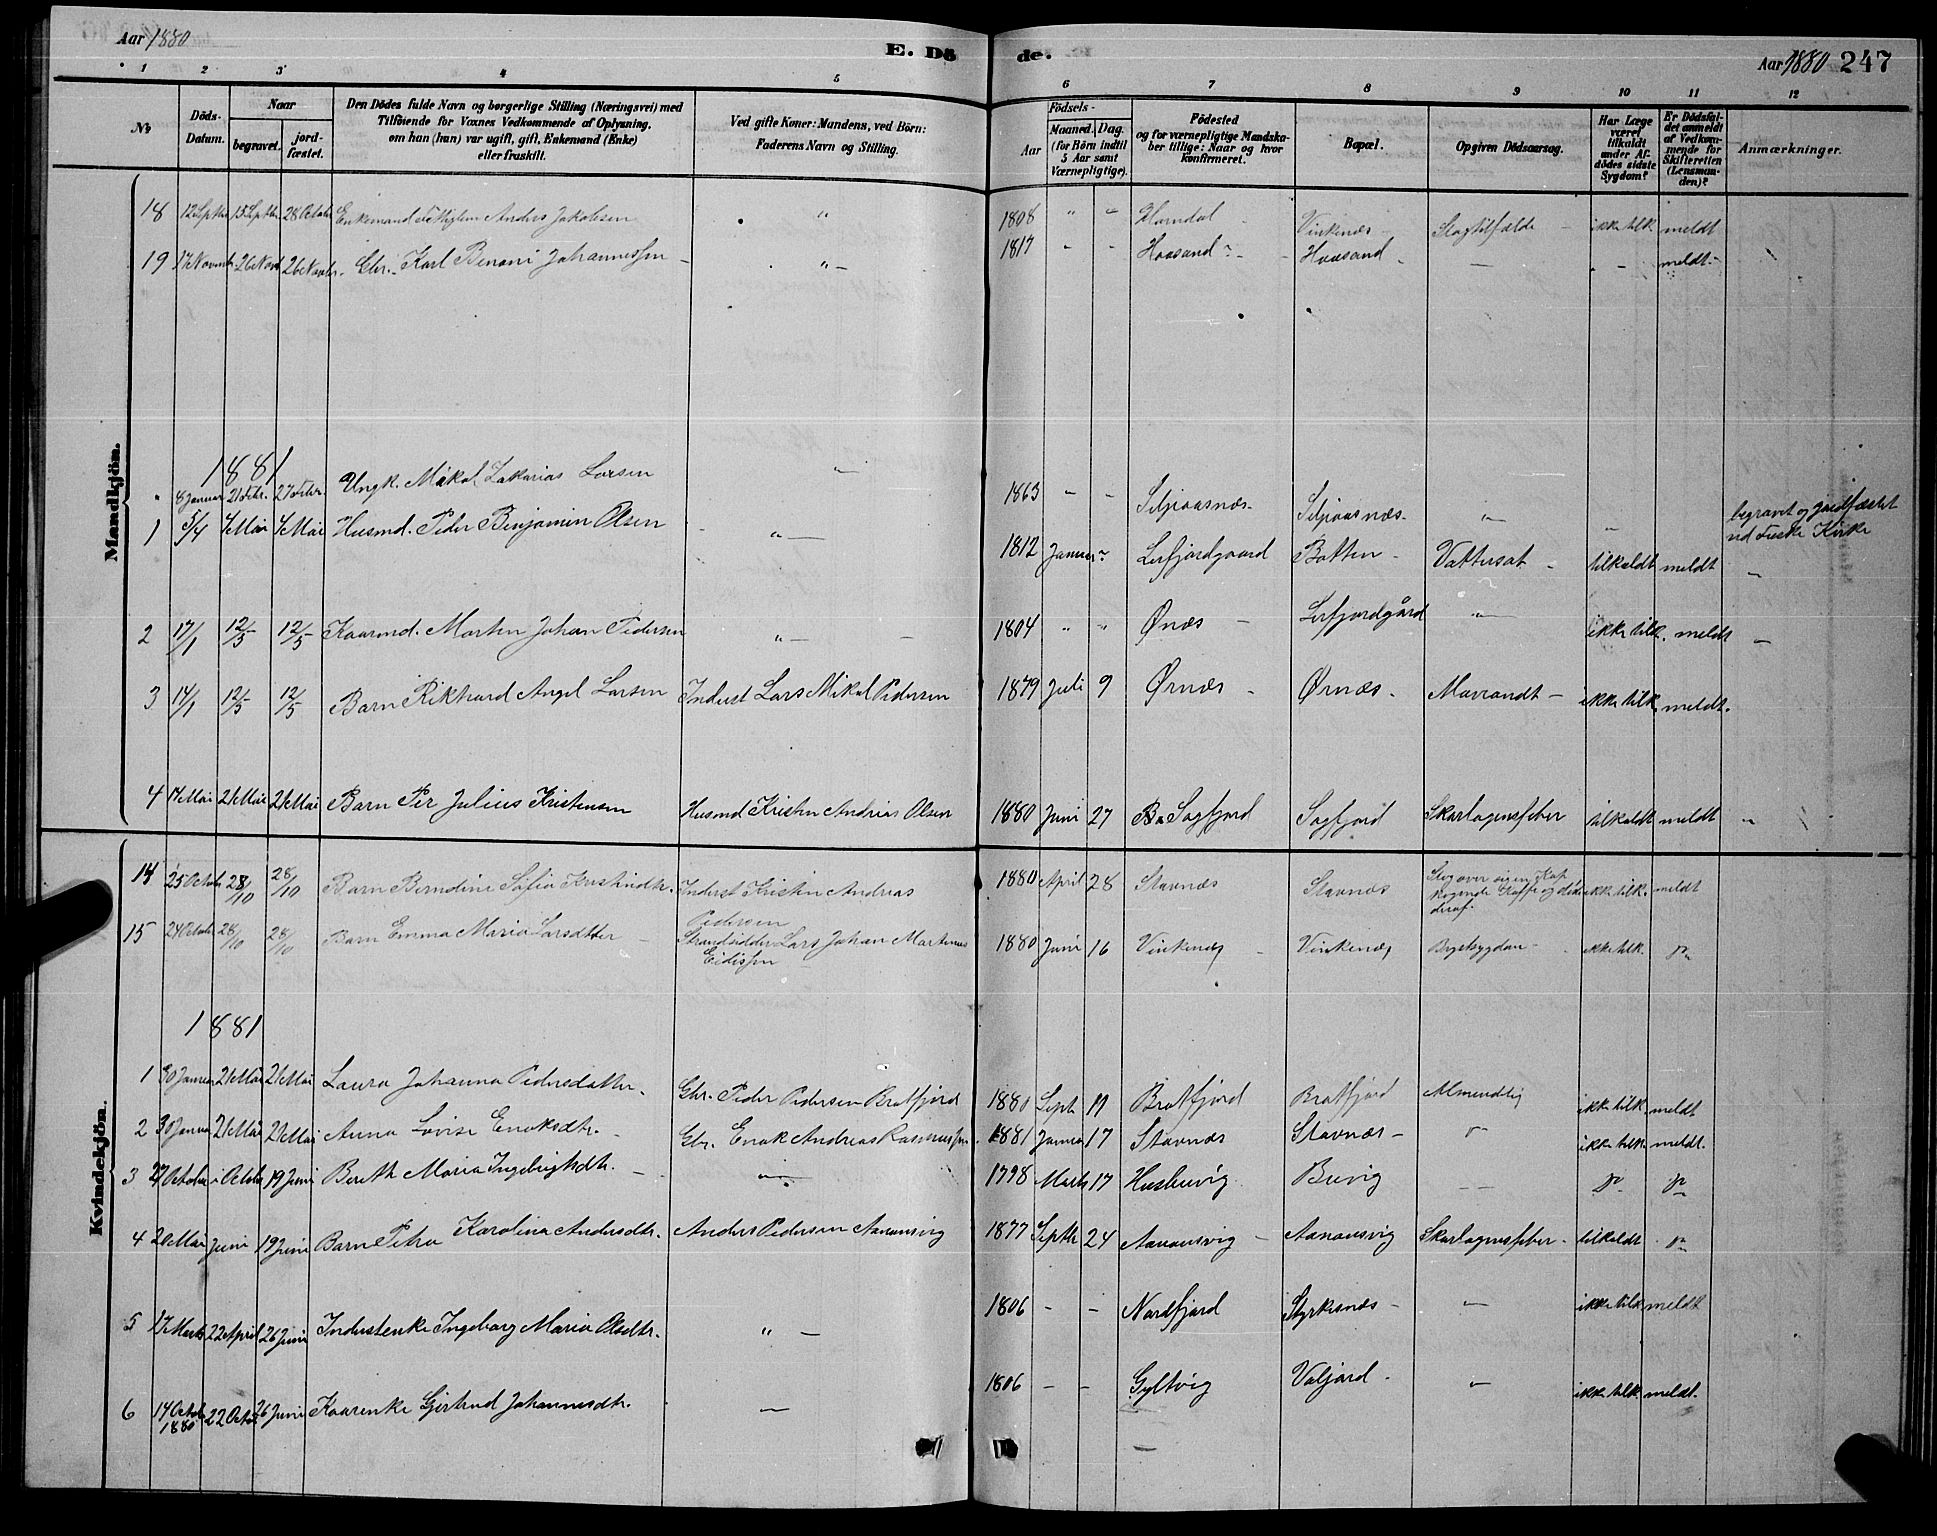 Aar 1880
E. Dö
de.
Aar 1880 247
1 2 3 4 5 6 7 8 9 10 11 12
No
Döds-Datum.
Naar
begravet.
jord-fæstet.
Den Dödes fulde Navn og borgerlige Stilling (Næringsvei) med
Tilföiende for Voxnes Vedkommende af Oplysning,
om han (hun) var ugift, gift, Enkemand (Enke)
eller fraskilt.
Ved gifte Koner: Mandens, ved Börn:
Faderens Navn og Stilling.
Födsels-
Aar
Maaned. Dag.
(for Börn indtil
5 Aar samt
Værnepligtige).
Födested
og for værnepligtige Mandska-
ber tillige: Naar og hvor
konfirmeret.
Bopæl.
Opgiven Dödsaarsag.
Har Læge
været
tilkaldt
under Af-
dödes sidste
Sygdom?
Er Dödsfal-
det anmeldt
af Vedkom-
mende for
Skifteretten
(Lensman-
den)?
Anmærkninger.
Mandkjön.
18 12 Septbr 15 Septbr 28 Octobr Enkemand Anders Jakobsen " 1808 " " Horndal Vinkenæs Slagtilfælde ikke tilk meldt
19 17 Novembr 26 Nov 26 Novbr. Gbr. Karl Benoni Johannessen " 1817 " " Haasand Haasand — — meldt
1881
" 8 Januar 21 Febr. 27 Febr. Ungk. Mikal Zakarias Larsen " 1863 " " Siljeaasnæs Siljeaasnæs " " begravet og jordfæstet
ved Fuske Kirke
1 5/4 4 Mai 4 Mai Husmd. Peder Benjamin Olsen " 1812 Januar Lerfjordgaard Botten Vattersot tilkaldt meldt "
2 17/1 12/5 12/5 Kaarmd. Morten Johan Pedersen " 1804 " " Ørnæs Lerfjordgård " ikke tilk. meldt —
3 14/1 12/5 12/5 Barn Rikhard Angel Larsen Inderst Lars Mikal Pedersen 1879 Juli 9 Ørnæs Ørnæs ikke tilk. meldt.
4 14 Mai 21 Mai 21 Mai Barn Per Julius Kristensen Husmd Kristen Andreas Olsen 1880 Juni 27 Sagfjord Sagfjord Skarlagensfeber tilkaldt meldt "
Kvindekjön.
14 25 Octobr 28/10 28/10 Barn Berndine Sofia Kristindtr. Inderst Kristen Andreas
Pedersen 1880 April 28 Stavnæs Stavnæs Slog over sigen Kop
kogende Kaffe og døde
deraf. ikke tilk. meldt
15 24 Octobr 28/10 28/10 Barn Emma Maria Larsdatter Strandsidder Lars Johan Martinus
Eidissen 1880 Juni 16 Vinkenæs Vinkenæs Brystsygdom ikke tilk.
1881
1 30 Januar 21 Mai 21 Mai Laura Johanna Pedersdatter Gbr. Peder Pedersen Bratfjord 1880 Septb 11 Bratfjord Bratfjord Almindelig ikke tilk. meldt
2 30 Januar 21 Mai 21 Mai Anna Lovise Enoksdtr. Gbr. Enok Andreas Rasmussen 1881 Januar 17 Stavnæs Stavnæs ikke tilk. meldt.
3 27 October i Octobr 19 Juni Bereth Maria Ingebrigtsdtr. " 1798 Marts 17 Husbuvig Buvig — —
4 20 Mai Juni 19 Juni Barn Petra Karolina Andersdtr. Anders Pedersen Aanansvig 1877 Septbr 24 Aanansvig Aanansvig Skarlagensfeber tilkaldt
5 17 Marts 22 April 26 Juni Inderstenke Ingeborg Maria Olsdtr. " — 1806 — — Nordfjord Styrkesnæs — ikke tilk meldt
6 14 Octob
1880 22 Octbr 26 Juni Kaarenke Gjertrud Johannesdtr. — 1806 — — Gyltvig Valjord — ikke tilk meldt.